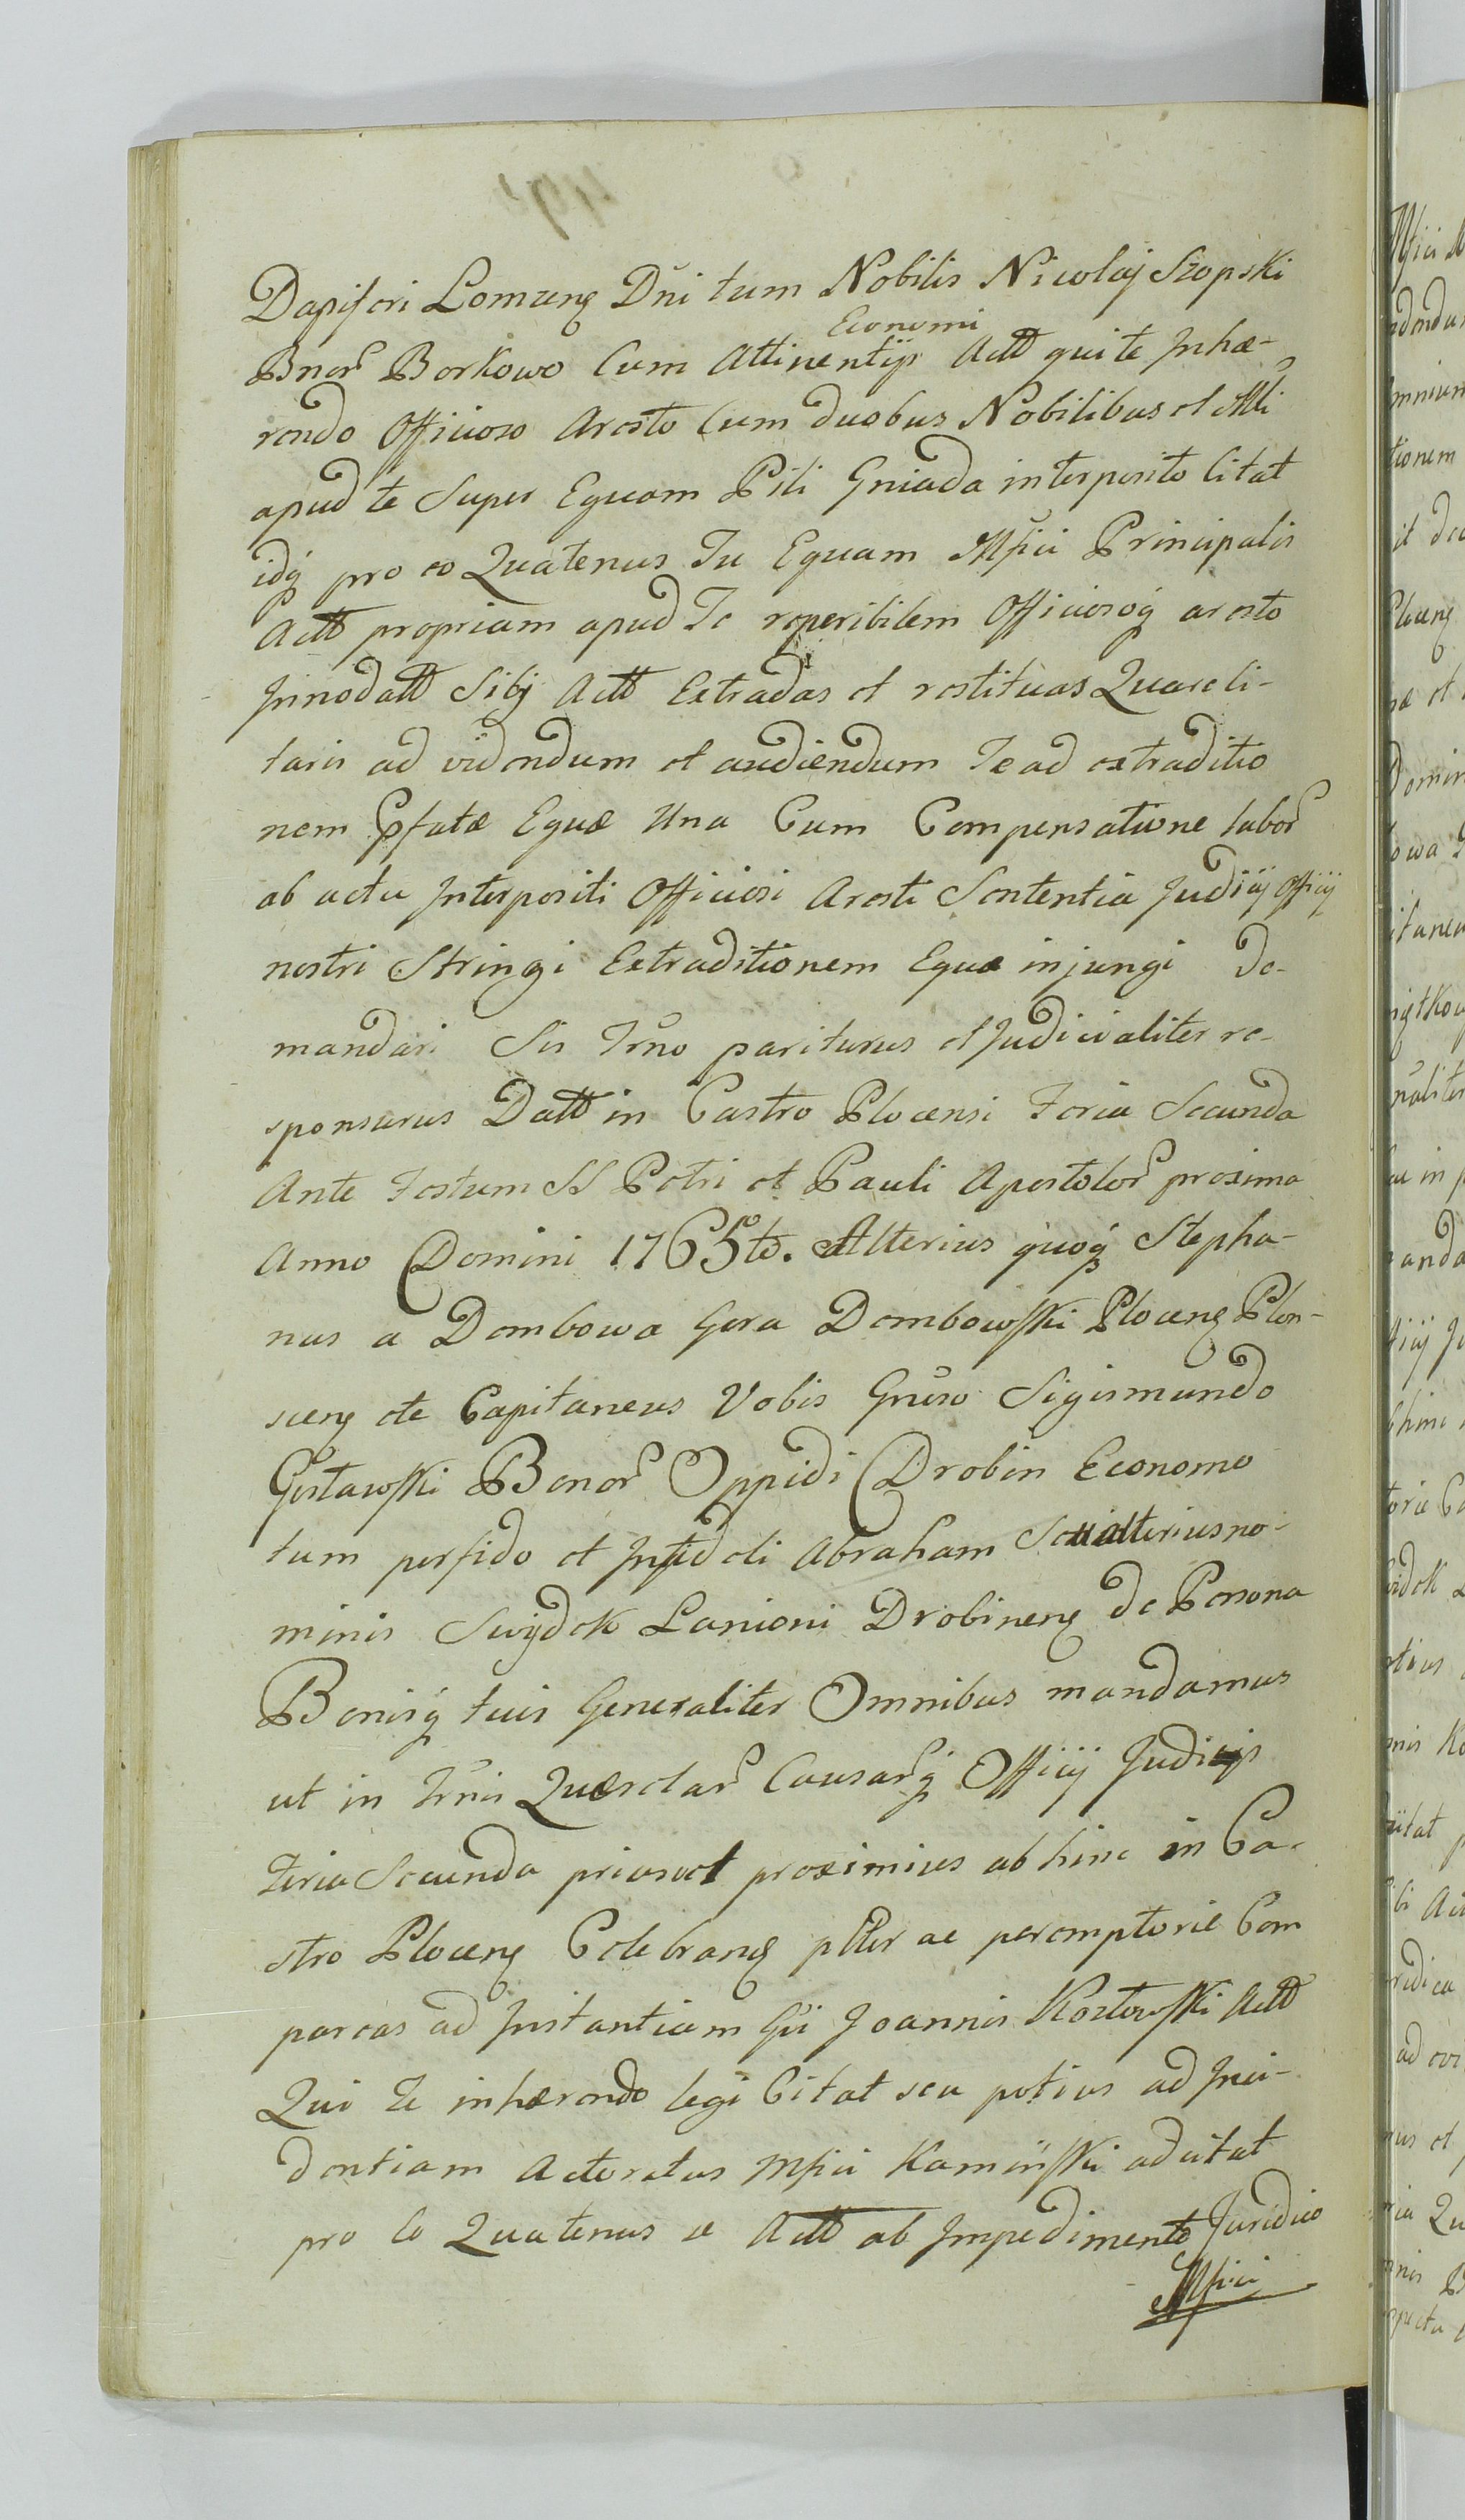 Dapiferi Lomzens Dni tum Nobilis Nicolaj Szopski
Economi
Bnor Borkowo Cum Attinentijs Actt qui te Inhæ-
rendo Officioso Aresto Cum duobus Nobilibus et Mli
apud te Super Equam Pili Gniada interposito Citat
idq pro eo Quatenus Tu Equam Mfici Principalis
Actt propriam apud Te reperibilem Officiosoq aresto
Innodatt Sibj Actt Extradas et restituas Quare ci-
taris ad videndum et audiendum Te ad extraditio
nem Pfatæ Equæ Una Cum Compensatione labor
ab actu Interpositi Officiosi Aresti Sententia Judicij Officij
nostri Stringi Extraditionem Equæ injungi De-
mandari Sis Trno pariturus et Judicialiter re-
sponsurus Datt in Castro Plocensi Feria Secunda
Ante Festum SS Petri et Pauli Apostolor proxima
Anno Domini 1765to. Alterius quoq Stepha-
nus a Dembowa Gora Dembowsski Plocens Plon-
scens etc Capitaneus Vobis Gnroso Sigismundo
Gostawsski Bonor Oppidi Drobin Economo
tum perfido et Infideli Abraham Seu alterius no-
minis Swijdek Lanioni Drobinens de Persona
Bonisq tuis Generaliter Omnibus mandamus
ut in Trnis Quærelar Causarq Officij Judicijs
Feria Secunda prius vel proximius ab hinc in Ca-
stro Plocens Celebrans ptter ac peremptorie Com
pareas ad Instantiam Gsi Joannis Kozłowsski Actt
Qui Te inhærendo legi Citat seu potius ad Inci-
dentiam Actoratus Mfici Kaminsski adcitat
pro eo Quatenus se Actt ab Impedimento Juridico
Mfici